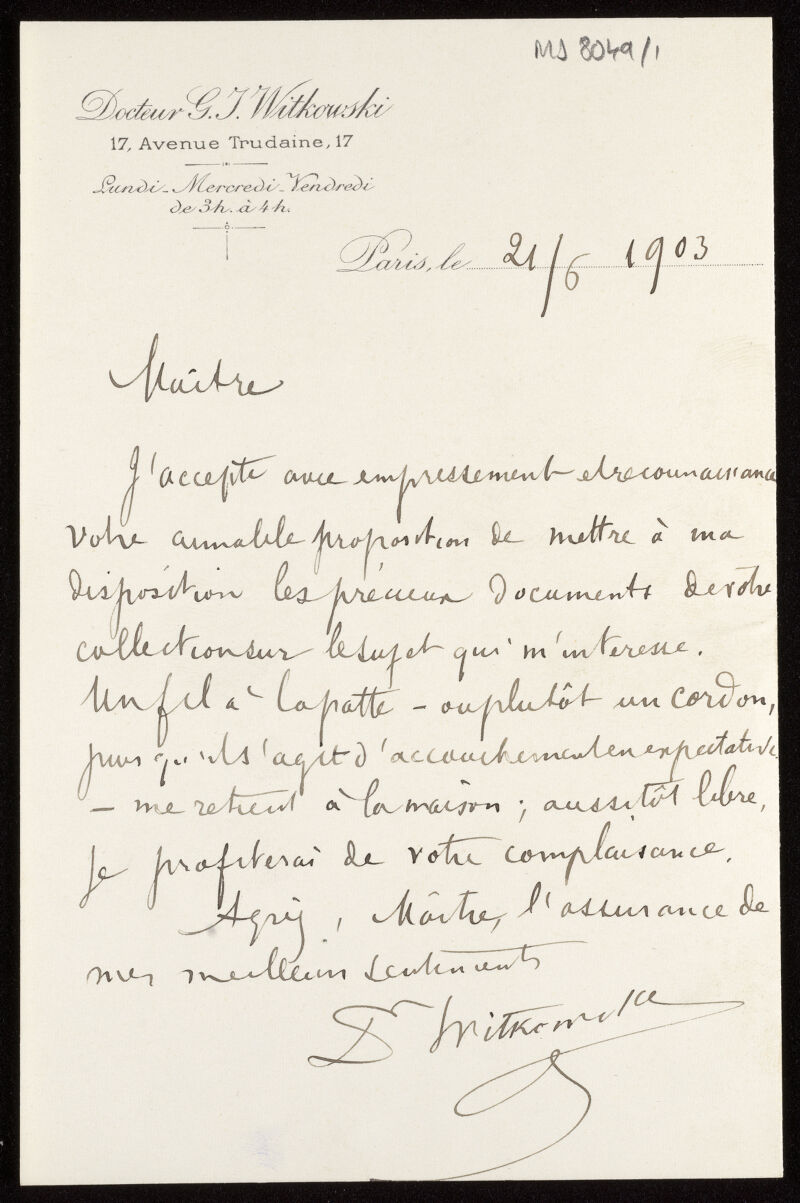 MS 8049/1
Docteur G. J. Witkowski
17, Avenue Trudaine, 17
Lundi - Mercredi - Vendredi
de 3h. à 4h.
Paris, le 21/6 1903
Maître
J'accepte avec empressement et reconnaissance
votre aimable proposition de mettre à ma
disposition les précieux documents de votre
collection sur le sujet qui m'interesse.
Un fil à la patte – ou plutôt un cordon,
puisqu'il s'agit d'accouchement en expectative
– me retient à la maison ; aussitôt libre,
je profiterai de votre complaisance.
Agréz, Maître, l'assurance de
mes meilleurs sentiments
Dr Witkowski